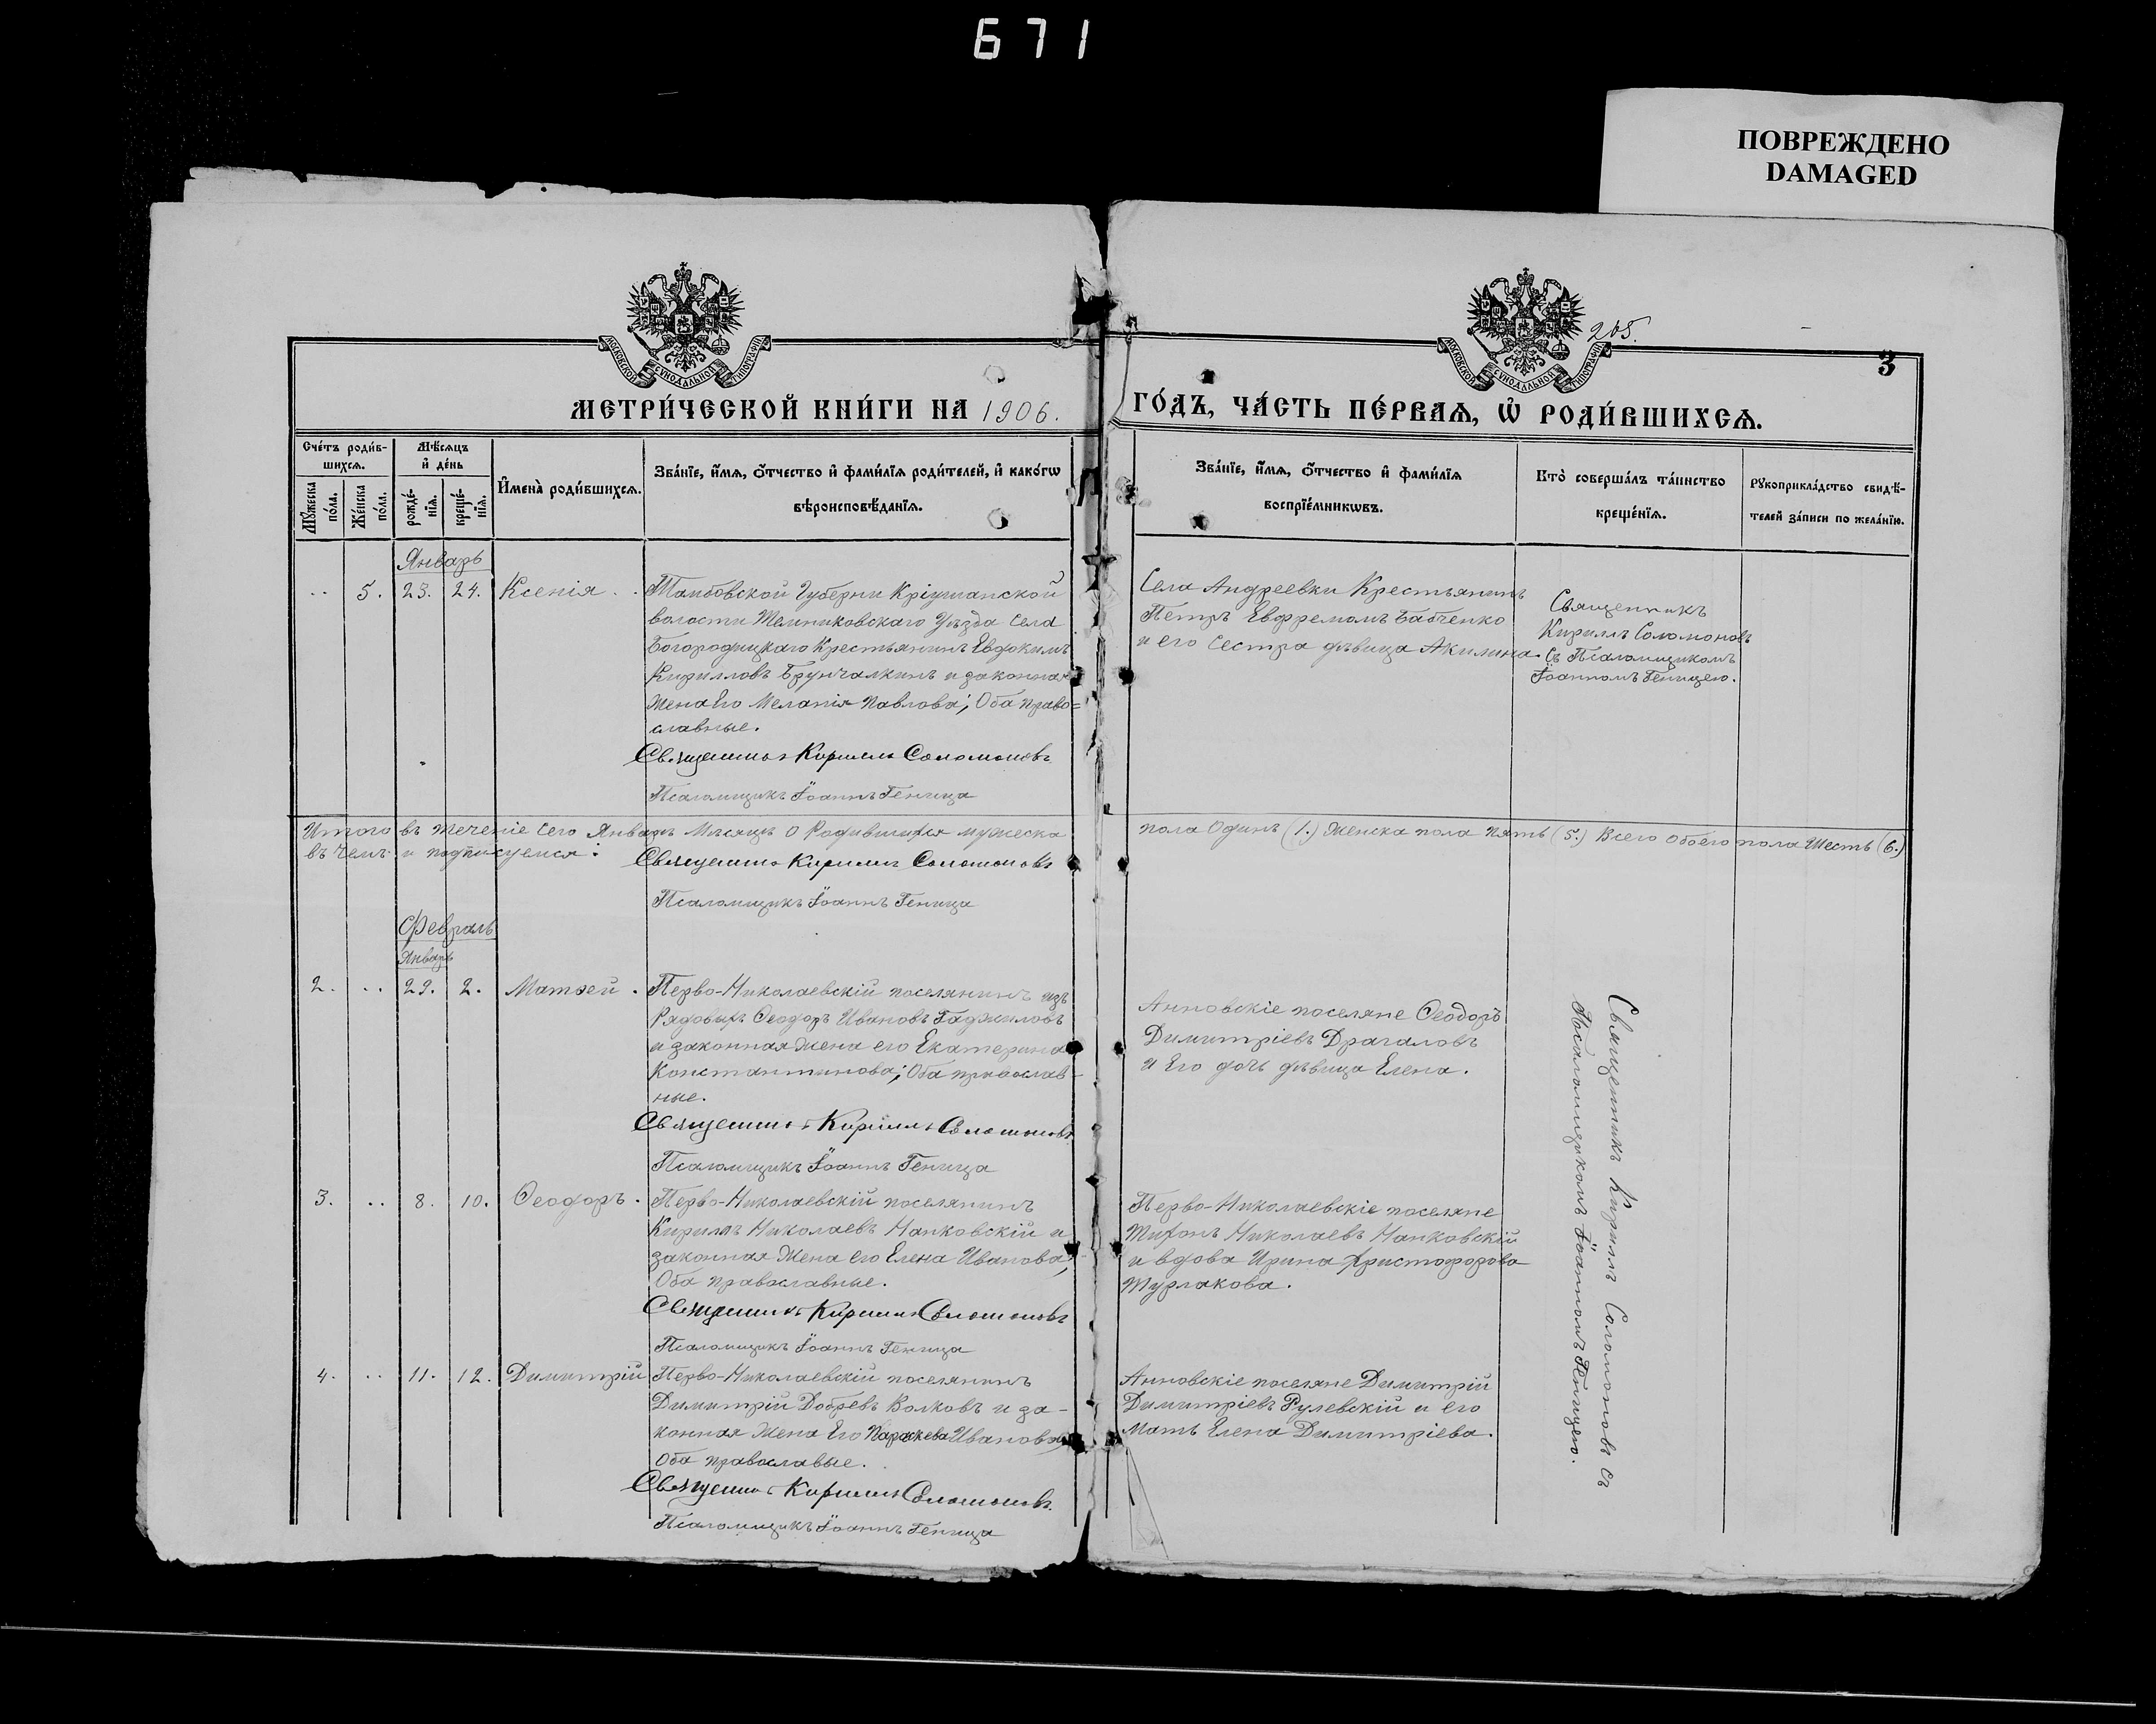 671
ПОВРЕЖДЕНО
DAMAGED
265.
3
МОСКОВСКОЙ СУНОДАЛЬНОЙ ТИПОГРАФІИ
МОСКОВСКОЙ СУНОДАЛЬНОЙ ТИПОГРАФІИ
МЕТРИ́ЧЕСКОЙ КНИ́ГИ НА 1906.
ГО́ДЪ, ЧА́СТЬ ПЕ́РВАѦ, Ѽ РОДИ́ВШИХСѦ.
Сче́тъ роди́в-
шихсѧ.
Мѣ́сѧцъ
и҆ де́нь
Мꙋ́жеска
по́ла.
Же́нска
по́ла.
рожде́-
нїѧ.
креще́-
нїѧ.
И҆мена̀ роди́вшихсѧ.
Зва́нїе, и҆́мѧ, ѻ҆́тчество и҆ фами́лїѧ роди́телей, и҆ како́гѡ
вѣроисповѣ́данїѧ.
Зва́нїе, и҆́мѧ, ѻ҆́тчество и҆ фами́лїѧ
воспрїе́мникѡвъ.
Кто̀ соверша́лъ та́инство
креще́нїѧ.
Рꙋкоприкла́дство свидѣ́-
телей за́писи по жела́нїю.
Январь
.. 5. 23. 24. Ксенія.
Тамбовской Губерни Кріушанской
волости Темниковскаго Уѣзда Села
Богородицкаго Крестьянинъ Евдокимъ
Кирилловъ Брунчалкинъ и законная
Жена Его Меланія Павлова; Оба право=
славные.
Священникъ Кириллъ Соломоновъ
Псаломщикъ Іоаннъ Геница
Села Андреевки Крестьянинъ
Петръ Евфремомъ Бабченко
и его Сестра дѣвица Акилина.
Священникъ
Кириллъ Соломоновъ
Съ Псаломщикомъ
Іоанномъ Геницею.
Итого въ течение Сего Январь Мѣсяцъ о Родившихся мужеска
пола Одинъ (1.) Женска пола Пять (5.) Всего Обоего пола Шесть (6.)
въ чемъ и подписуемся:
Священникъ Кириллъ Соломоновъ
Псаломщикъ Іоаннъ Геница
Февраль
Январь
2. .. 29. 2. Матѳей.
Перво-Николаевскій поселянинъ изъ
Рядовыхъ Ѳеодоръ Ивановъ Гаджиловъ
и законная жена его Екатерина
Константинова; Оба православ-
ные.
Священникъ Кириллъ Соломоновъ
Псаломщикъ Іоаннъ Геница
Анновскіе поселяне Ѳеодоръ
Димитріевъ Драгаловъ
и Его дочь дѣвица Елена.
Священникъ Кириллъ Соломоновъ съ
Псаломщикомъ Іоанномъ Геницею.
3. .. 8. 10. Ѳеодоръ.
Перво-Николаевскій поселянинъ
Кириллъ Николаевъ Нанковскій и
законная Жена его Елена Иванова;
Оба православные.
Священникъ Кириллъ Соломоновъ
Псаломщикъ Іоаннъ Геница
Перво-Николаевскіе поселяне
Тифонъ Николаевъ Нанковскій
и вдова Ирина Христофорова
Турлакова.
4. .. 11. 12. Димитрій
Перво-Николаевскій поселянинъ
Димитрій Добревъ Волковъ и за-
конная Жена Его Параскева Иванова;
Оба православые.
Священникъ Кириллъ Соломоновъ.
Псаломщикъ Іоаннъ Геница
Анновскіе поселяне Димитрій
Димитріевъ Рулевскій и его
Мать Елена Димитріева.